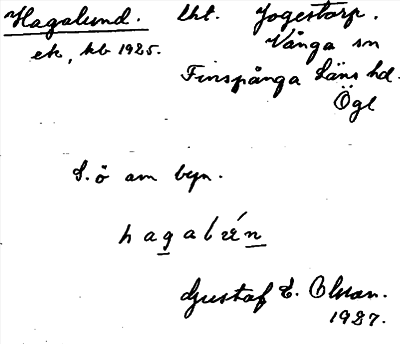 Hagalund. lht. Jogestorp.
ek, kb 1925. Vånga sn
Finspånga Läns hd.
Ögl
S. ö om byn.
hagalrén
Gustaf E. Olsson.
1927.